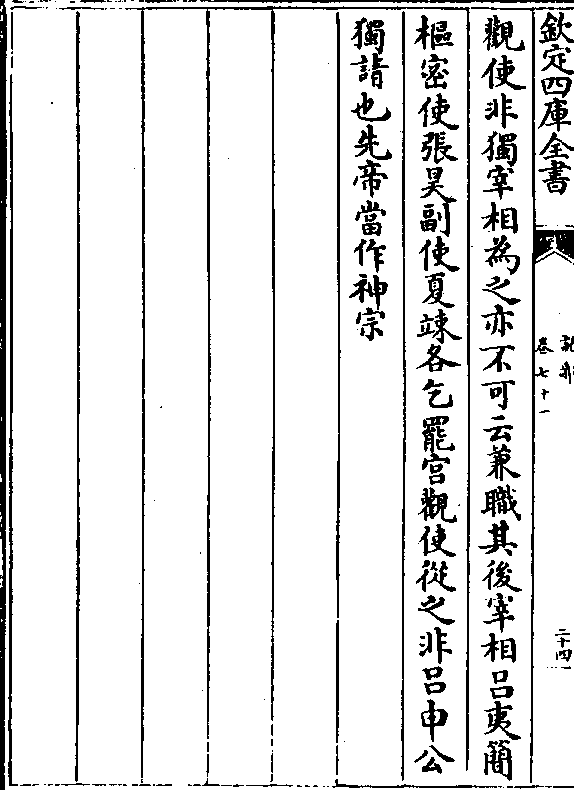 欽定四庫全書
說郛
卷七十一
二十四
觀使非獨宰相為之亦不可云兼職其後宰相吕夷簡
樞密使張昊副使夏竦各乞罷宫觀使從之非吕申公
獨請也先帝當作神宗